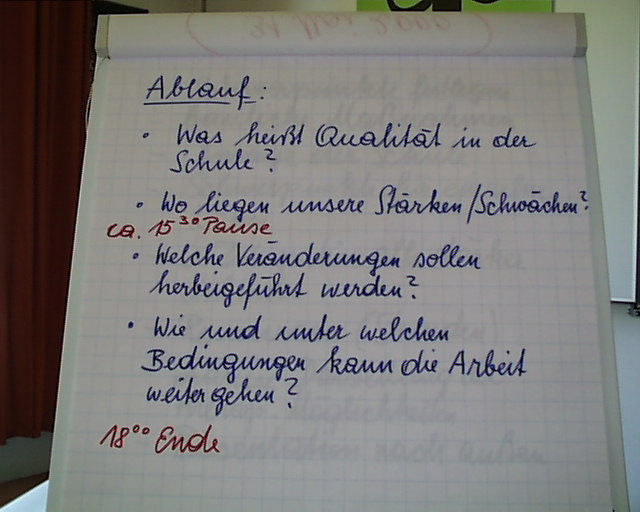 (31 Mai 2000)
Ablauf:
• Was heißt Qualität in der
Schule?
• Wo liegen unsere Stärken/Schwächen?
ca. 15³⁰ Pause
• Welche Veränderungen sollen
herbeigeführt werden?
• Wie und unter welchen
Bedingungen kann die Arbeit
weitergehen?
18⁰⁰ Ende